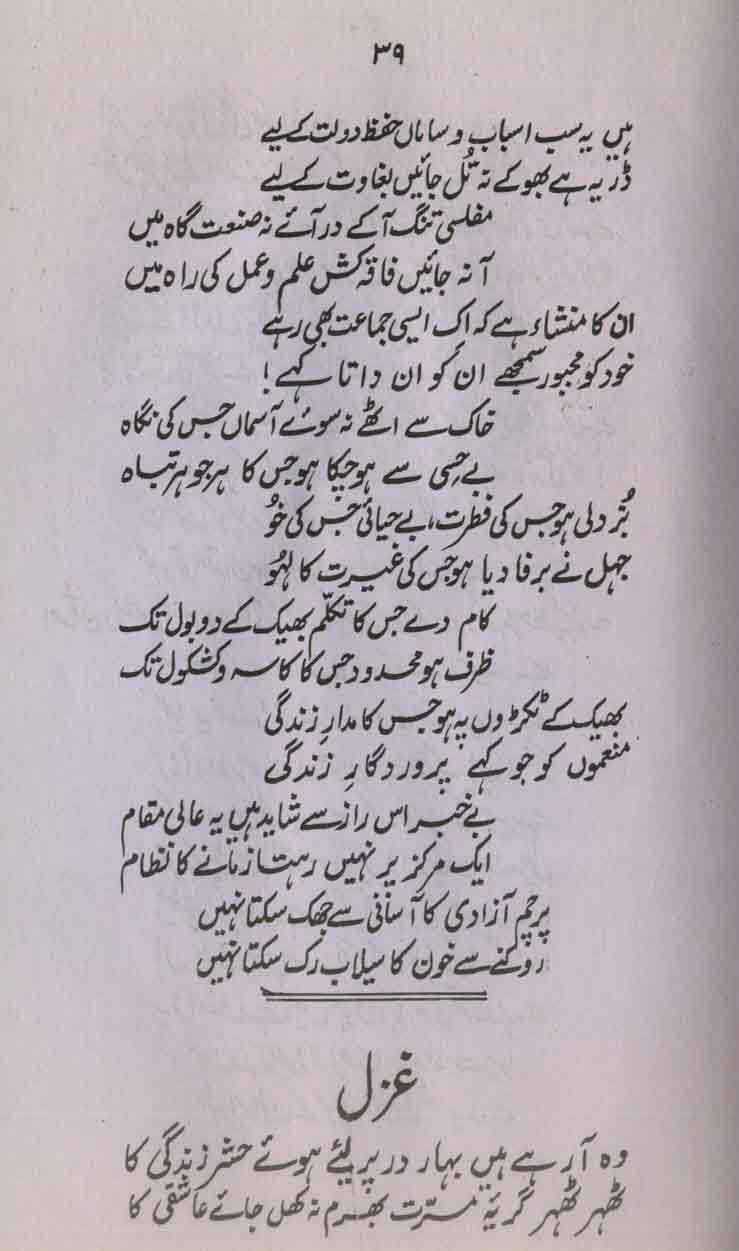 ۳۹
ہیں یہ سب اسباب و ساماں حفظ دولت کے لیے
ڈر یہ ہے بھوکے نہ تُل جائیں بغاوت کے لیے
مفلسی تنگ آکے در آئے نہ صنعت گاہ میں
آ نہ جائیں فاقہ کش علم و عمل کی راہ میں
ان کا منشاء ہے کہ اک ایسی جماعت بھی رہے
خود کو مجبور سمجھے ان کو ان داتا کہے!
خاک سے اٹھے نہ سوئے آسماں جس کی نگاہ
بے حِسی سے ہو چکا ہو جس کا ہر جوہر تباہ
بُزدلی ہو جس کی فطرت، بے حیائی جس کی خُو
جہل نے برفا دیا ہو جس کی غیرت کا لہُو
کام دے جس کا تکلّم بھیک کے دو بول تک
ظرف ہو محدود جس کا کاسہ و کشکول تک
بھیک کے ٹکڑوں پہ ہو جس کا مدارِ زندگی
منعموں کو جو کہے پروردگارِ زندگی
بے خبر اس راز سے شاید ہیں یہ عالی مقام
ایک مرکز پر نہیں رہتا زمانے کا نظام
پرچم آزادی کا آسانی سے جھک سکتا نہیں
روکنے سے خون کا سیلاب رک سکتا نہیں
غزل
وہ آرہے ہیں بہار در پر لیئے ہوئے حشر زندگی کا
ٹھہر ٹھہر گریۂ مسرّت بھرم نہ کھل جائے عاشقی کا